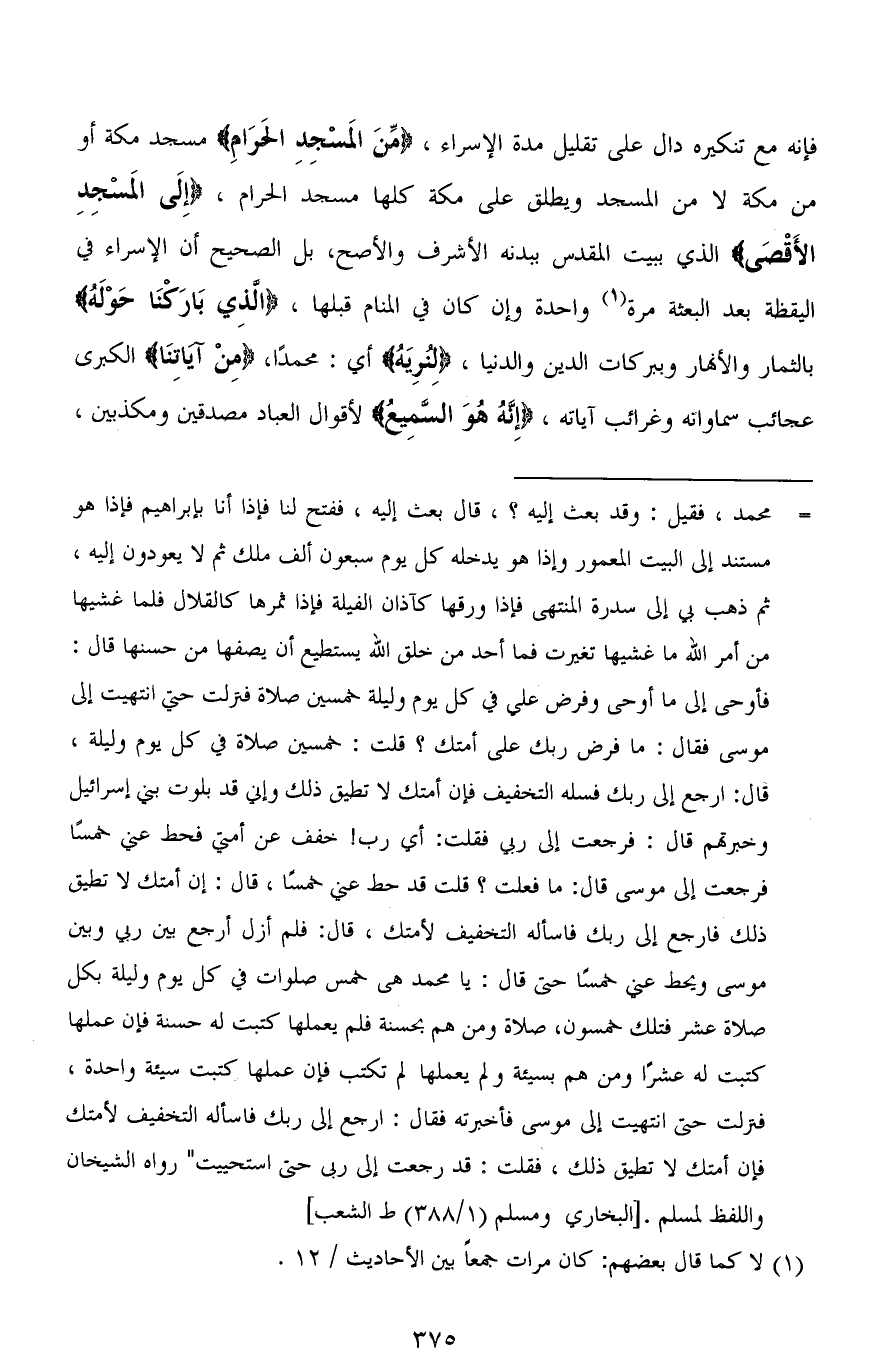 فإنه مع تنكيره دال على تقليل مدة الإسراء ، ﴿مِّنَ الْمَسْجِدِ الْحَرَامِ﴾ مسجد مكة أو
من مكة لا من المسجد ويطلق على مكة كلها مسجد الحرام ، ﴿إِلَى الْمَسْجِدِ
الأَقْصَى﴾ الذي ببيت المقدس ببدنه الأشرف والأصح، بل الصحيح أن الإسراء في
اليقظة بعد البعثة مرة(١) واحدة وإن كان في المنام قبلها ، ﴿الَّذِي بَارَكْنَا حَوْلَهُ﴾
بالثمار والأنهار وببركات الدين والدنيا ، ﴿لِنُرِيَهُ﴾ أي : محمدًا، ﴿مِنْ آيَاتِنَا﴾ الكبرى
عجائب سماواته وغرائب آياته ، ﴿إِنَّهُ هُوَ السَّمِيعُ﴾ لأقوال العباد مصدقين ومكذبين ،
= محمد ، فقيل : وقد بعث إليه ؟ ، قال بعث إليه ، ففتح لنا فإذا أنا بإبراهيم فإذا هو
مستند إلى البيت المعمور وإذا هو يدخله كل يوم سبعون ألف ملك ثم لا يعودون إليه ،
ثم ذهب بي إلى سدرة المنتهى فإذا ورقها كآذان الفيلة فإذا ثمرها كالقلال فلما غشيها
من أمر الله ما غشيها تغيرت فما أحد من خلق الله يستطيع أن يصفها من حسنها قال :
فأوحى إلى ما أوحى وفرض علي في كل يوم وليلة خمسين صلاة فنزلت حتى انتهيت إلى
موسى فقال : ما فرض ربك على أمتك ؟ قلت : خمسين صلاة في كل يوم وليلة ،
قال: ارجع إلى ربك فسله التخفيف فإن أمتك لا تطيق ذلك وإني قد بلوت بني إسرائيل
وخبرتهم قال : فرجعت إلى ربي فقلت: أي رب! خفف عن أمتي فحط عني خمسًا
فرجعت إلى موسى قال: ما فعلت ؟ قلت قد حط عني خمسًا ، قال : إن أمتك لا تطيق
ذلك فارجع إلى ربك فاسأله التخفيف لأمتك ، قال: فلم أزل أرجع بين ربي وبين
موسى ويحط عني خمسًا حتى قال : يا محمد هى خمس صلوات في كل يوم وليلة بكل
صلاة عشر فتلك خمسون، صلاة ومن هم بحسنة فلم يعملها كتبت له حسنة فإن عملها
كتبت له عشرًا ومن هم بسيئة ولم يعملها لم تكتب فإن عملها كتبت سيئة واحدة ،
فنزلت حتى انتهيت إلى موسى فأخبرته فقال : ارجع إلى ربك فاسأله التخفيف لأمتك
فإن أمتك لا تطيق ذلك ، فقلت : قد رجعت إلى ربى حتى استحييت" رواه الشيخان
واللفظ لمسلم .[البخاري ومسلم (٣٨٨/١) ط الشعب]
(١) لا كما قال بعضهم: كان مرات جمعاً بين الأحاديث / ١٢ .
٣٧٥